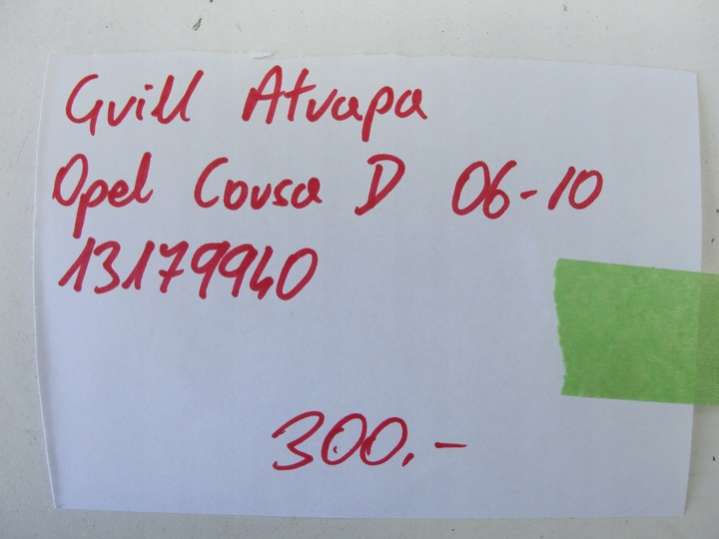 Grill Atrapa
Opel Corsa D 06-10
13179940
300,-